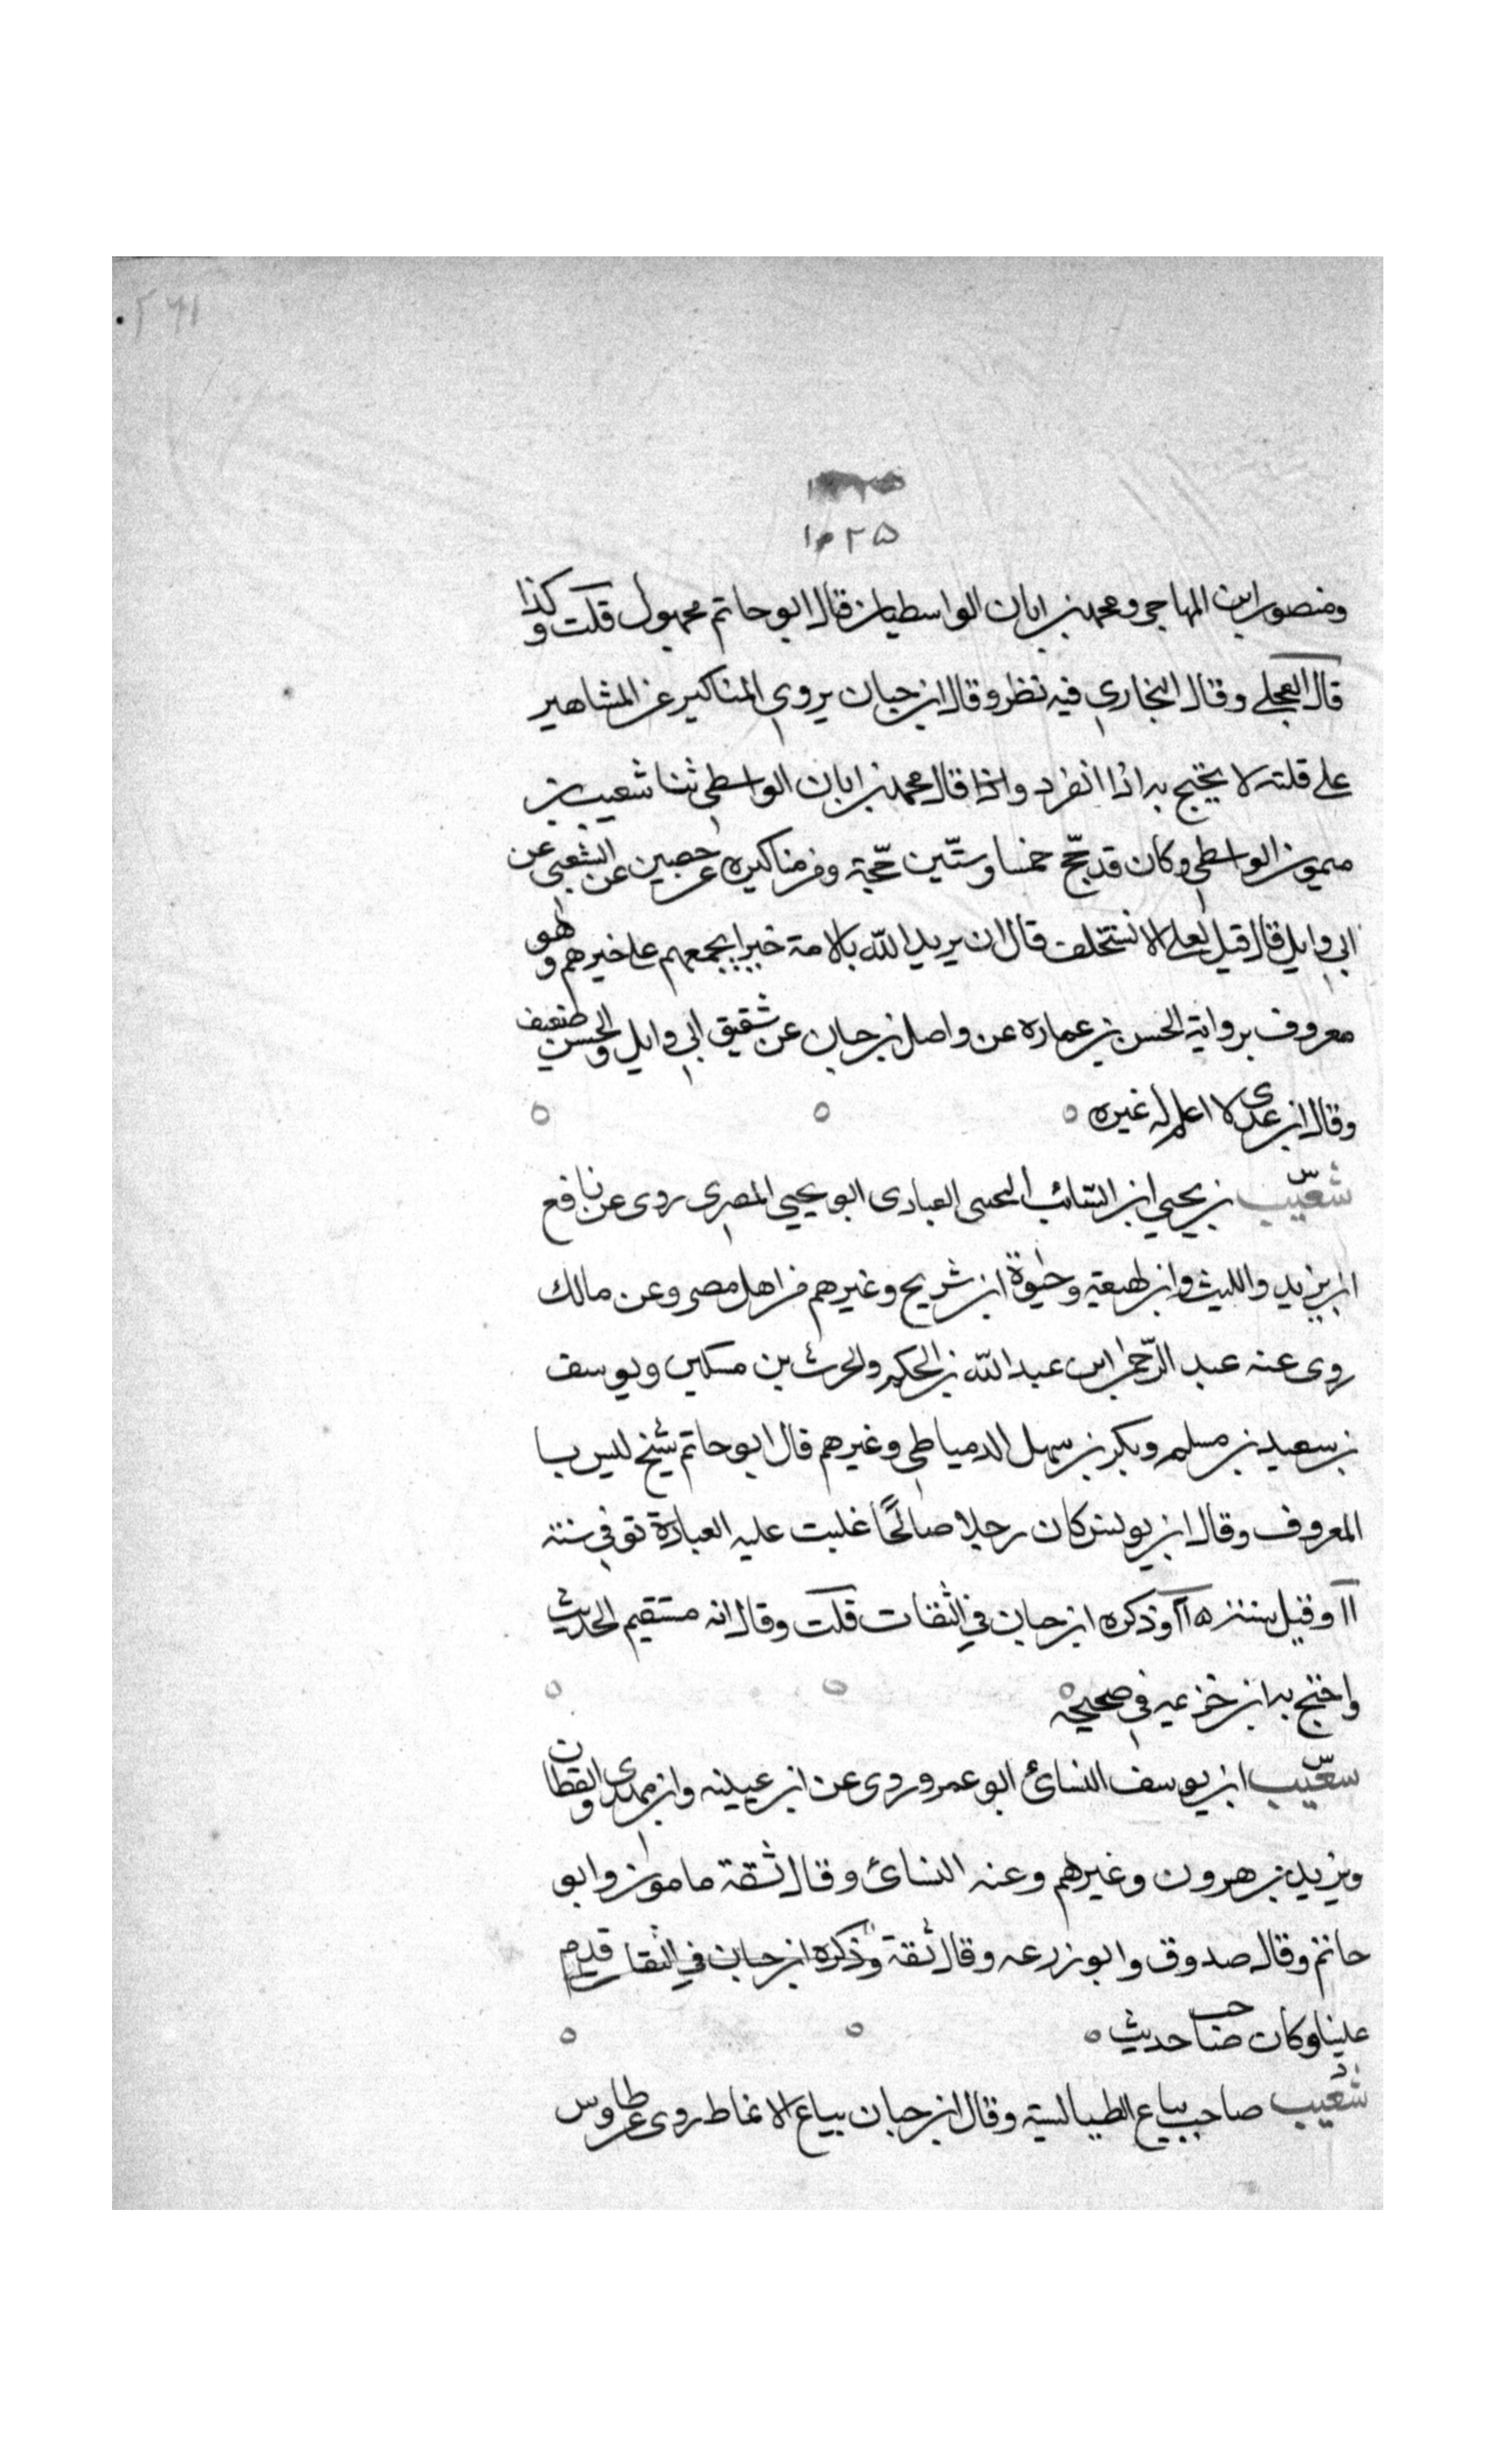 ۲۶۱
۱۰۲۵
ومنصور ابن المهاجر ومحمد بن ابان الواسطيان قال ابو حاتم مجهول قلت وكذا
قال العجلي وقال البخاري فيه نظر وقال ابن حبان يروي المناكير عن المشاهير
على قلته لا يحتج به اذا انفرد واذا قال محمد بن ابان الواسطي ثنا شعيب بن
ميمون الواسطي وكان قد حج خمسا وستين حجة ومن مناكيره عن حصين عن الشعبي عن
ابي وايل قال قيل لعلي الا تستخلف قال ان يريد الله بالامة خيرا يجمعهم على خيرهم وهو
معروف برواية الحسن بن عماره عن واصل بن حبان عن شقيق ابي وايل والحسن ضعيف
وقال ابن عدى لا اعلم له غيره
شعيب بن يحيي ابن السائب العبادى ابو يحيي المصرى روى عن نافع
ابن يزيد والليث وابن لهيعة وحيوة ابن شريح وغيرهم من اهل مصر وعن مالك
روى عنه عبد الرحمن ابن عبد الله بن الحكم والحرث بن مسكين ويوسف
بن سعيد بن مسلم وبكر بن سهل الدمياطي وغيرهم قال ابو حاتم شيخ ليس با
المعروف وقال ابن يونس كان رجلا صالحًا غلبت عليه العبادة توفي سنة
۱۱ وقيل سنة ۱۵ وذكره ابن حبان في الثقات قلت وقال انه مستقيم الحديث
واحتج به ابن خزيمه في صحيحه
شعيب ابن يوسف النسائ ابو عمرو روى عن ابن عيينه وابن مهدى والقطان
ويزيد بن هرون وغيرهم وعنه النسائ وقال ثقة مامون وابو
حاتم وقال صدوق وابو زرعه وقال ثقة وذكره ابن حبان في الثقا قدم
علينا وكان صاحب حديث
شعيب صاحب بياع الطيالسة وقال ابن حبان بياع الانماط روى عن طاوس